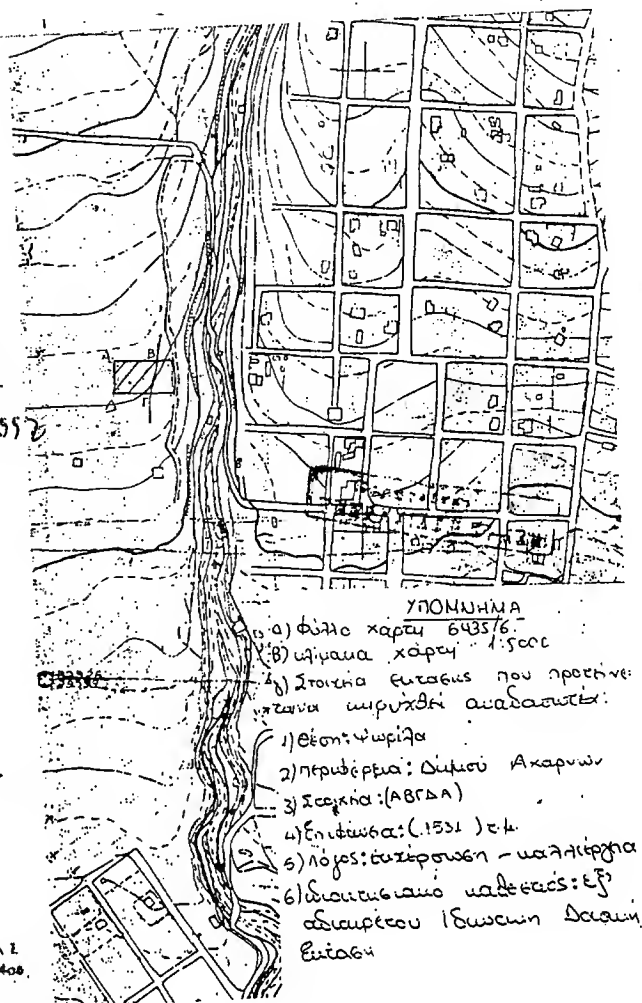 Α Β
Γ
ΥΠΟΜΝΗΜΑ
α) Φύλλο χάρτη 6435/6.
β) κλίμακα χάρτη 1:5000
γ) Στοιχεία εκτασης που προτείνε-
ται να κηρυχθεί αναδασωτέα:
1) Θέση: Ψωρίλα
2) περιφέρεια: Δήμου Αχαρνών
3) Στοιχεία: (ΑΒΓΔΑ)
4) Επιφάνεια: (.1531 ) τ.μ.
5) Λόγος: εκχέρσωση - καλλιέργεια
6) ιδιοκτησιακό καθεστώς: εξ'
αδιαιρέτου Ιδιωτική Δασική
Έκταση